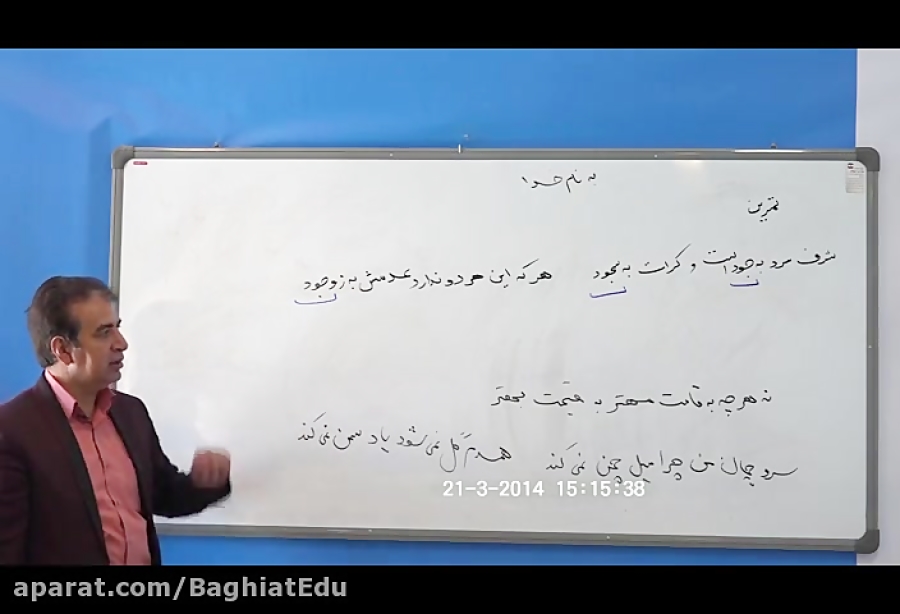 به نام خدا
تمرین
شرف مرد به جود است و کرامت به سجود هر که این هر دو ندارد عدمش به ز وجود
نه هر چه به قامت مهتر به قیمت بهتر
سرو چمان من چرا میل چمن نمی کند همدم گل نمی شود یاد سمن نمی کند
21-3-2014 15:15:38
aparat.com/BaghiatEdu